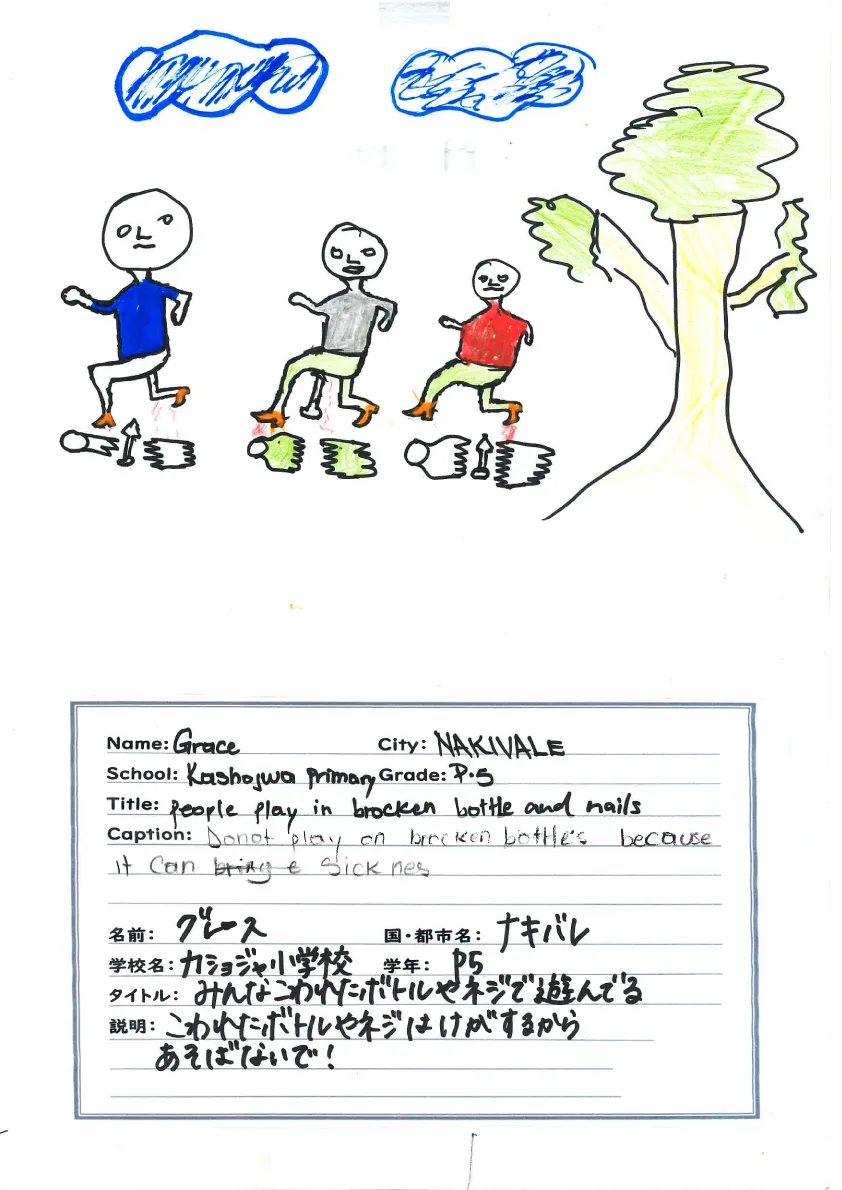 Name: Grace City: NAKIVALE
School: Kashojwa primary Grade: P.5
Title: people play in brocken bottle and nails
Caption: Donot play on brocken bottle's because
it can bring e Sick nes
名前: グレース 国・都市名: ナキバレ
学校名: カショジャ小学校 学年: P5
タイトル: みんなこわれたボトルやネジで遊んでる
説明: こわれたボトルやネジはけがするから
あそばないで!